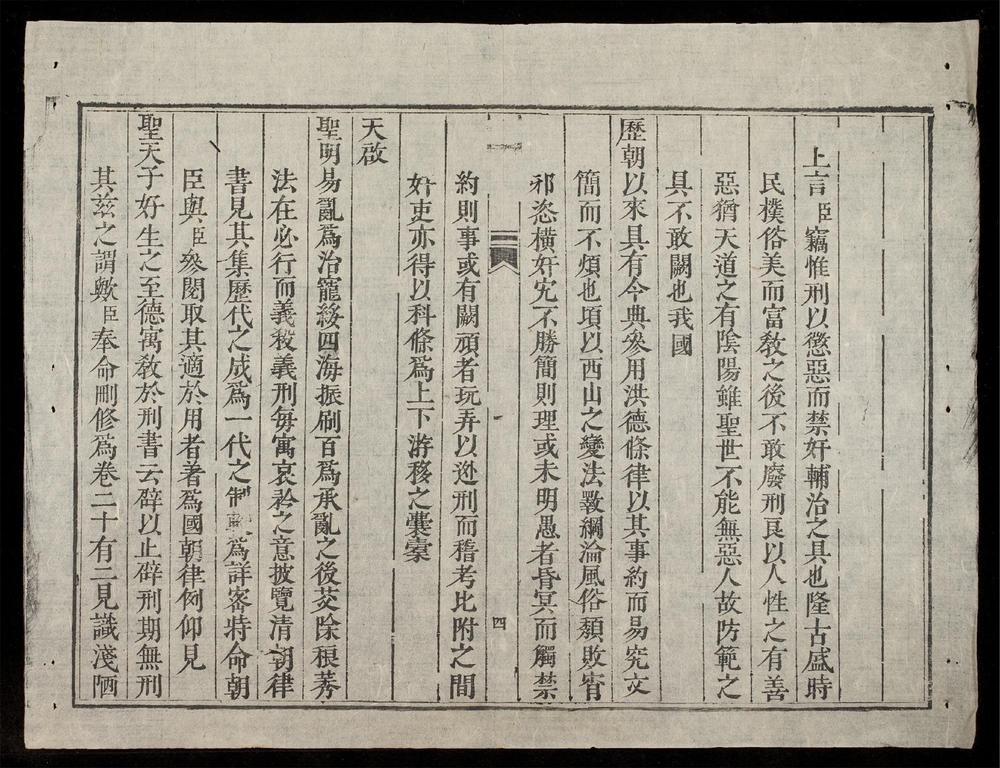 上言臣竊惟刑以懲惡而禁奸輔治之具也隆古盛時
民樸俗美而富敎之後不敢廢刑良以人性之有善
惡猶天道之有陰陽雖聖世不能無惡人故防範之
具不敢闕也我國
歷朝以來具有今典參用洪德條律以其事約而易究文
簡而不煩也頃以西山之變法斁綱淪風俗頹敗宵
邪恣橫奸宄不勝簡則理或未明愚者昏冥而觸禁
四
約則事或有闕頑者玩弄以逃刑而稽考比附之間
奸吏亦得以科條爲上下游移之囊橐
天啟
聖明易亂爲治寵綏四海振刷百爲承亂之後芟除稂莠
法在必行而義殺義刑每寓哀矜之意披覽清朝律
書見其集歷代之成爲一代之制 爲詳審特命朝
臣與臣參閱取其適於用者著爲國朝律例仰見
聖天子好生之至德寓敎於刑書云辟以止辟刑期無刑
其玆之謂歟臣奉命刪修爲卷二十有二見識淺陋